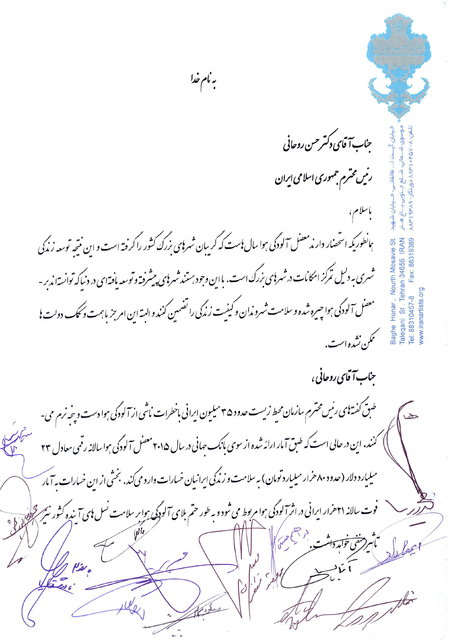 به نام خدا
جناب آقای دکتر حسن روحانی
رئیس محترم جمهوری اسلامی ایران
با سلام،
همانطور که استحضار دارید معضل آلودگی هوا سال هاست که گریبان شهرهای بزرگ کشور را گرفته است و این نتیجه توسعه زندگی
شهری به دلیل تمرکز امکانات در شهرهای بزرگ است. با این وجود هستند شهرهای پیشرفته و توسعه یافته ای در دنیا که توانسته اند بر -
معضل آلودگی هوا چیره شده و سلامت شهروندان و کیفیت زندگی را تضمین کنند و البته این امر جز با همت و کمک دولت ها
ممکن نشده است.
جناب آقای روحانی،
طبق گفته های رئیس محترم سازمان محیط زیست حدود ۳۵ میلیون ایرانی با خطرات ناشی از آلودگی هوا دست و پنجه نرم می-
کنند، این در حالی است که طبق آمار ارائه شده از سوی بانک جهانی در سال ۲۰۱۵ معضل آلودگی هوا سالانه رقمی معادل ۲۳
میلیارد دلار (حدود ۸۰ هزار میلیارد تومان) به سلامت و زندگی ایرانیان خسارات وارد می کند. بخشی از این خسارات به آمار
فوت سالانه ۲۱ هزار ایرانی در اثر آلودگی هوا مربوط می شود و به طور حتم بلای آلودگی هوا بر سلامت نسل های آینده کشور نیز
تاثیر منفی خواهد داشت.
Baghe Honar, North Mosavie St.
Taleqani St. Tehran 34656 IRAN
Tel: 88310457-8 Fax: 88319389
www.iranartists.org